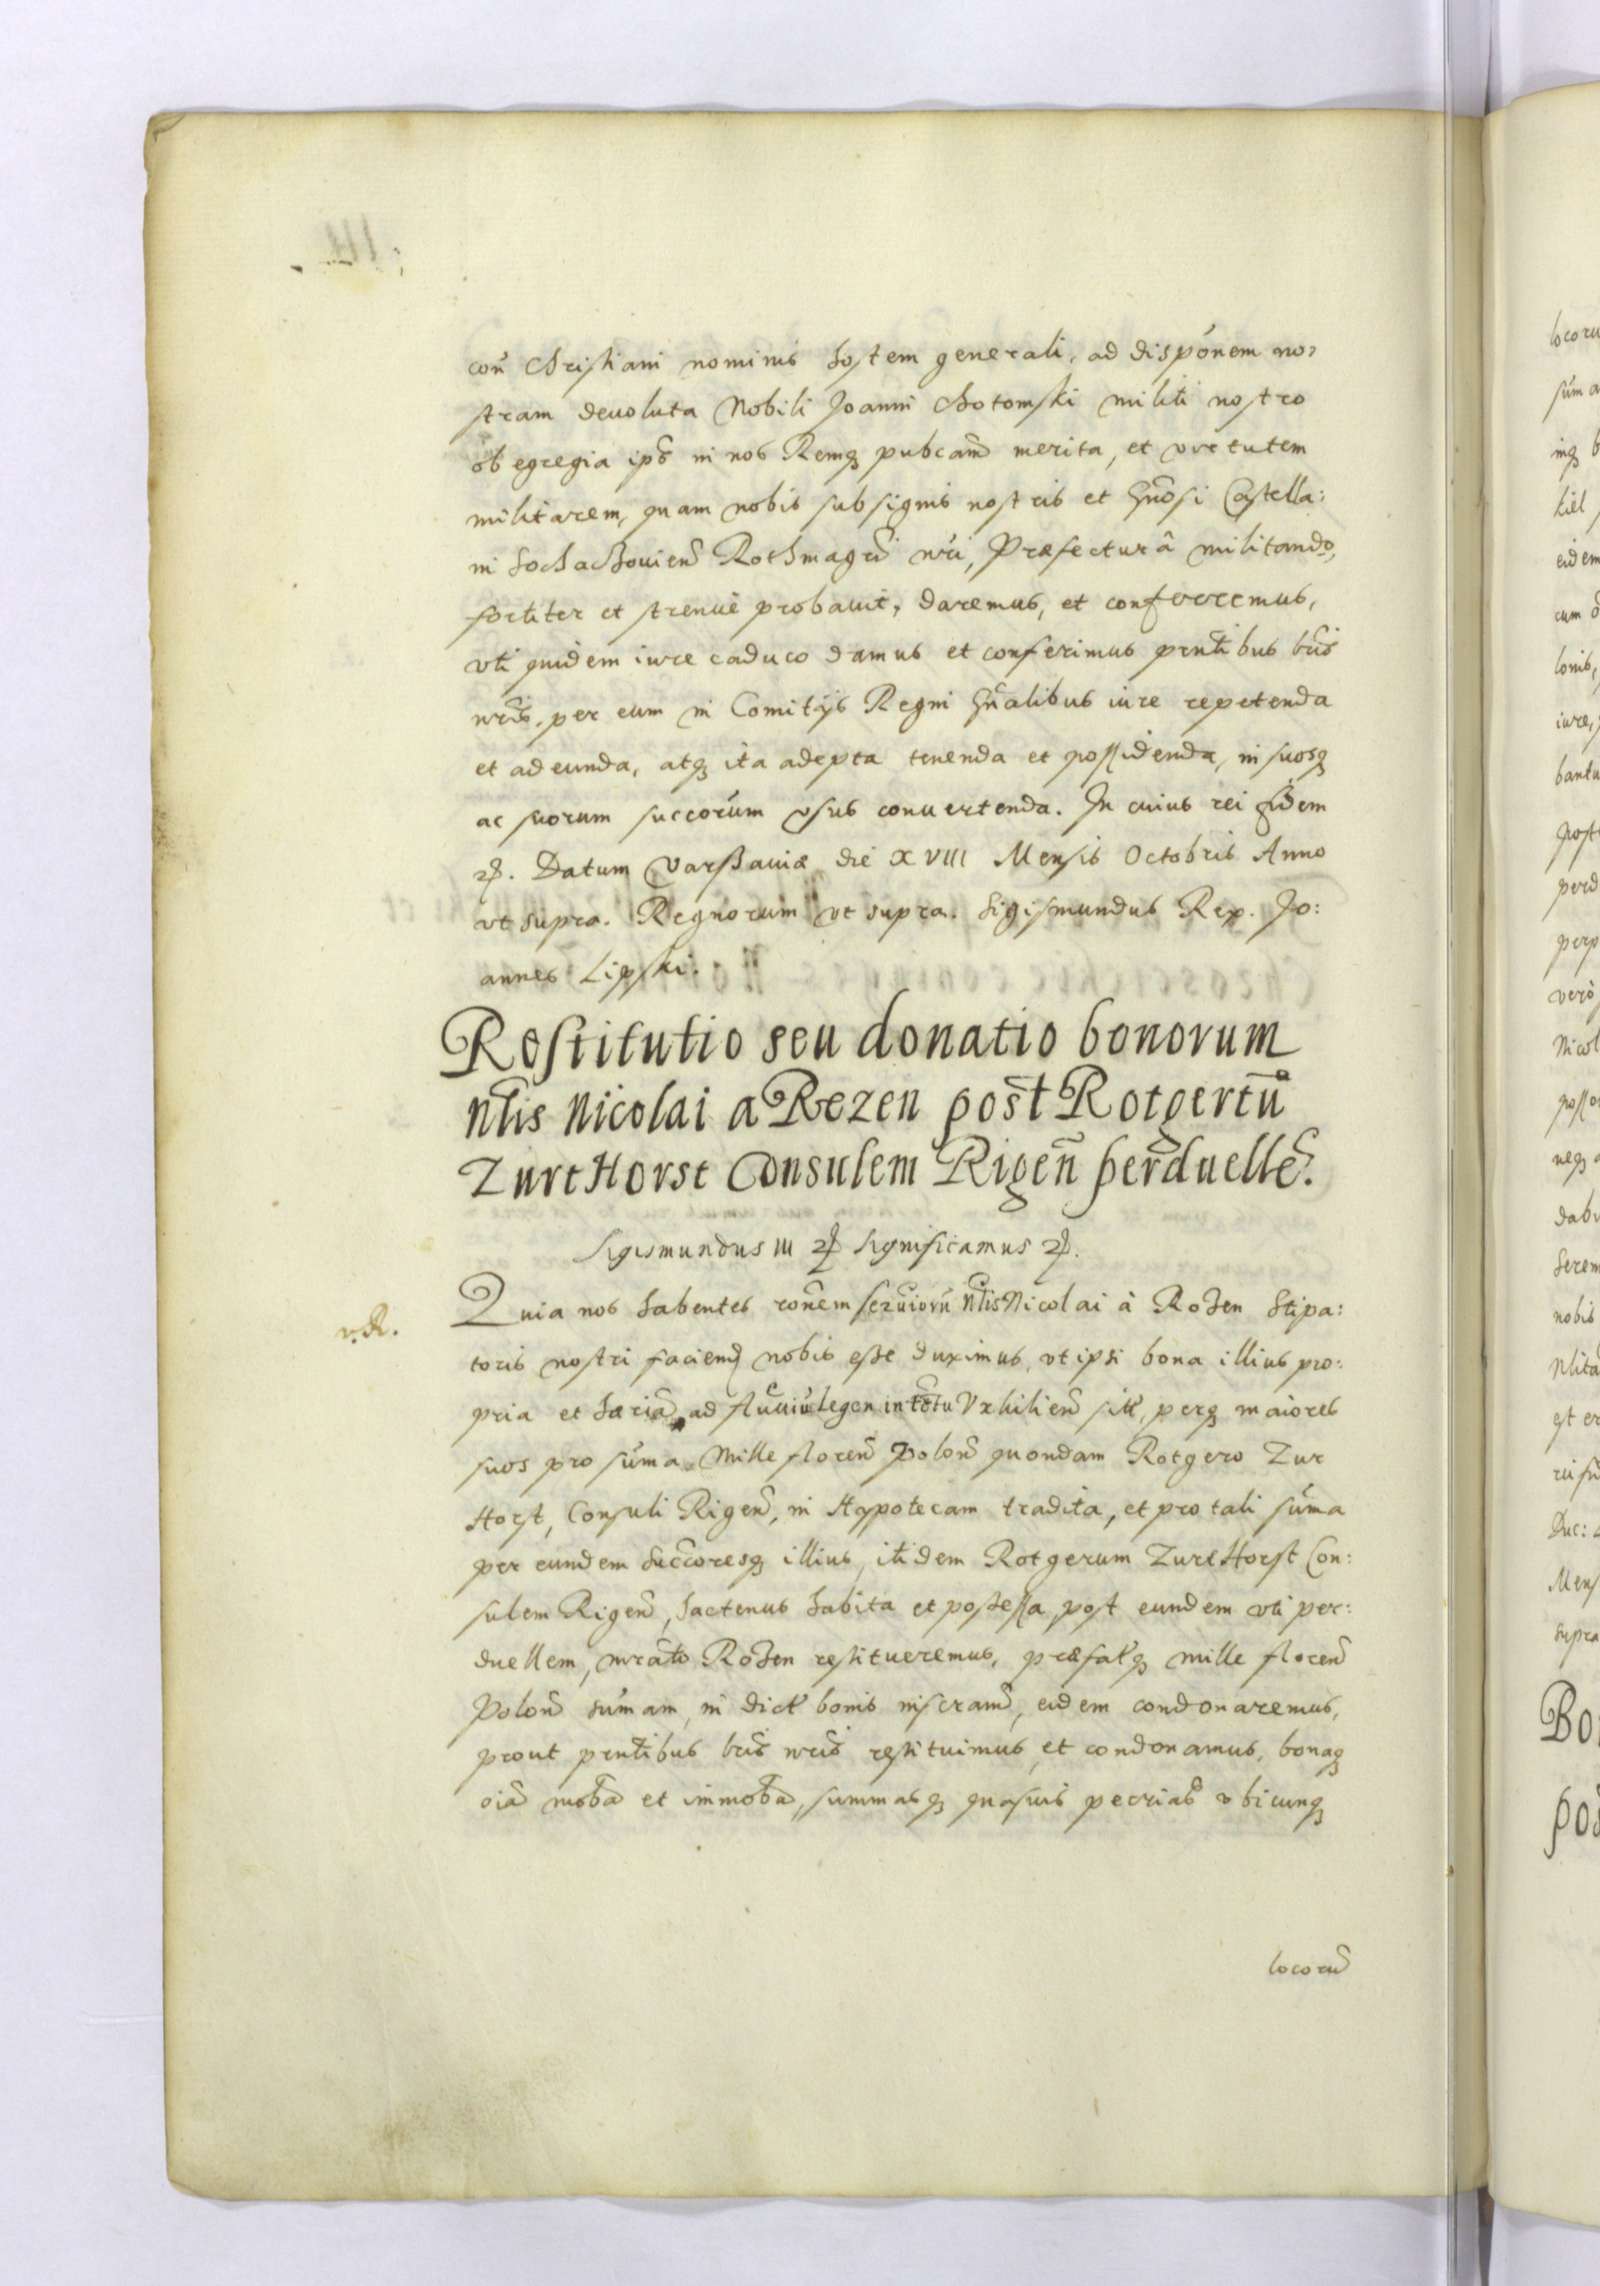 con̄ Christiani nominis hostem generali, ad dispõnem no,
stram deuoluta Nobili Joanni Chotomski militi nostro
ob egregia ips̃ in nos Remq̃ pubcam̃ merita, et virtutem
militarem, quam nobis sub signis nostris et Gn̄osi Castella:
ni Sochachouien̄ Rothmagr̄i nr̄i, Præfecturâ militando,
fortiter et strenuè probauit, daremus, et conferremus,
vti quidem iure caduco damus et conferimus pnt̄ibus lr̄is
nr̄is, per eum in Comitijs Regni Gn̄alibus iure repetenda
et adeunda, atq̃ ita adepta tenenda et possidenda, in suosq̃
ac suorum succorum vsus conuertenda. In cuius rei fidem
etc. Datum Varssauiæ die XVIII Mensis Octobris Anno
vt supra. Regnorum vt supra. Sigismundus Rex. Jo:
annes Lipski.
Restitutio seu donatio bonorum
Nl̄is Nicolai a Rezen post Rotgertū
Zurt Horst Consulem Rigen̄ perduellē.
Sigismundus III etc. Significamus etc.
v. R.
Quia nos habentes ron̄em seruiorū Nl̄is Nicolai à Rosen Stipa:
toris nostri faciend̃ nobis esse duximus, vt ipsi bona illius pro:
pria et hæria ad fluuiū Legen in tctu Vxhilien̄ sit̃, perq̃ maiores
suos pro sum̄a Mille floren̄ Polon̄ quondam Rotgero Zur
Horst, Consuli Rigen̄, in Hypotecam tradita, et pro tali sum̄a
per eundem Succoresq̃ illius, itidem Rotgerum Zurt Horst Con:
sulem Rigen̄, hactenus habita et possessa, post eundem vti per:
duellem, mr̄ato Rosen restitueremus, præfatq̃ mille floren̄
Polon̄ sum̄am, in dict̃ bonis inscram̃, eidem condonaremus,
prout pnt̄ibus lr̄is nr̄is restituimus, et condonamus, bonaq̃
oia mob̄a et immob̄a, summasq̃ quasuis pecrias̄ vbicunq̃
locorū